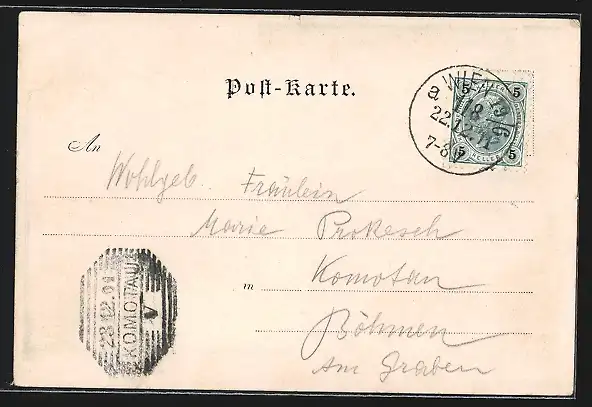 Post-Karte.
WIEN 13/6
a 18
22.12.11
7-8V
5 5
5 5
HELLER
An
Wohlgeb. Fräulein
Marie Prokesch
in Komotau
Böhmen
Am Graben
KOMOTAU
23.12.01
V